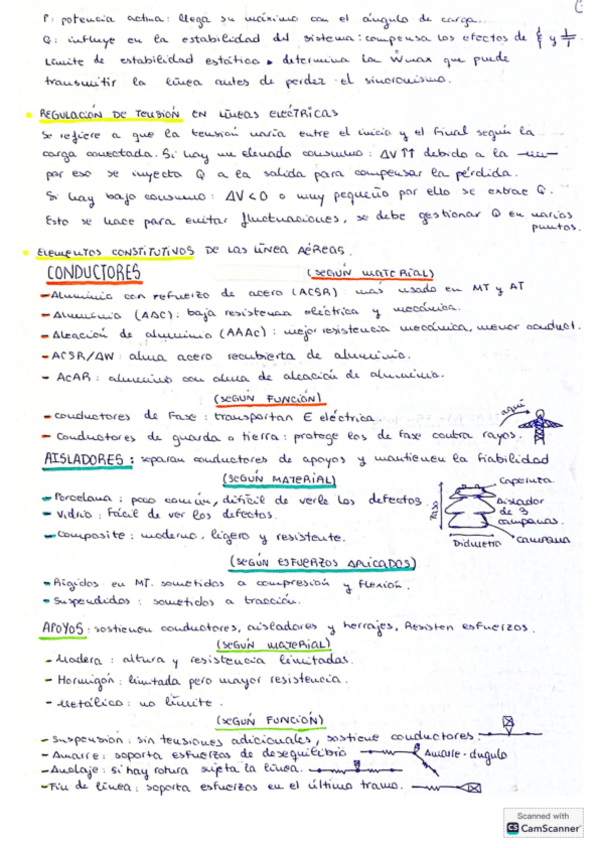 P: potencia activa: llega su máximo con el ángulo de carga.
Q: influye en la estabilidad del sistema: compensa los efectos de y
Límite de estabilidad estática • determina la Wmax que puede
transmitir la línea antes de perder el sincronismo.
• REGULACIÓN DE TENSIÓN EN LÍNEAS ELÉCTRICAS
Se refiere a que la tensión varía entre el inicio y el final según la
carga conectada. Si hay un elevado consumo: ΔV↑↑ debido a la
por eso se inyecta Q a la salida para compensar la pérdida.
Si hay bajo consumo: ΔV<0 o muy pequeño por ello se extrae Q.
Esto se hace para evitar fluctuaciones, se debe gestionar Q en varios
puntos.
• ELEMENTOS CONSTITUTIVOS DE LAS LÍNEA AÉREAS.
CONDUCTORES (SEGÚN MATERIAL)
- Aluminio con refuerzo de acero (ACSR) más usado en MT y AT
- Aluminio (AAC): baja resistencia eléctrica y mecánica.
- Aleación de aluminio (AAAC): mejor resistencia mecánica, menor conduct.
- ACSR/AW: alma acero recubierta de aluminio.
- ACAR: aluminio con alma de aleación de aluminio.
(SEGÚN FUNCIÓN)
- Conductores de Fase: transportan E eléctrica.
aquí
- Conductores de guarda o tierra: protege los de fase contra rayos.
AISLADORES: separan conductores de apoyos y mantienen la fiabilidad
(SEGÚN MATERIAL)
- Porcelana: poco común, difícil de verle los defectos.
- Vidrio: Fácil de ver los defectos.
- Composite: moderno, ligero y resistente.
Caperuza
Paso
Aislador
de 3
campanas.
Diámetro
campana
(SEGÚN ESFUERZOS APLICADOS)
- Rígidos en MT. sometidos a compresión y flexión.
- Suspendidos: sometidos a tracción.
APOYOS: sostienen conductores, aisladores y herrajes. Resisten esfuerzos.
(SEGÚN MATERIAL)
- Madera: altura y resistencia limitadas.
- Hormigón: limitada pero mayor resistencia.
- Metálico: no límite.
(SEGÚN FUNCIÓN)
- Suspensión: sin tensiones adicionales, sostiene conductores.
- Amarre: soporta esfuerzos de desequilibrio Amarre-ángulo
- Anclaje: si hay rotura sujeta la línea.
- Fin de línea: soporta esfuerzos en el último tramo.
Scanned with
CS CamScanner